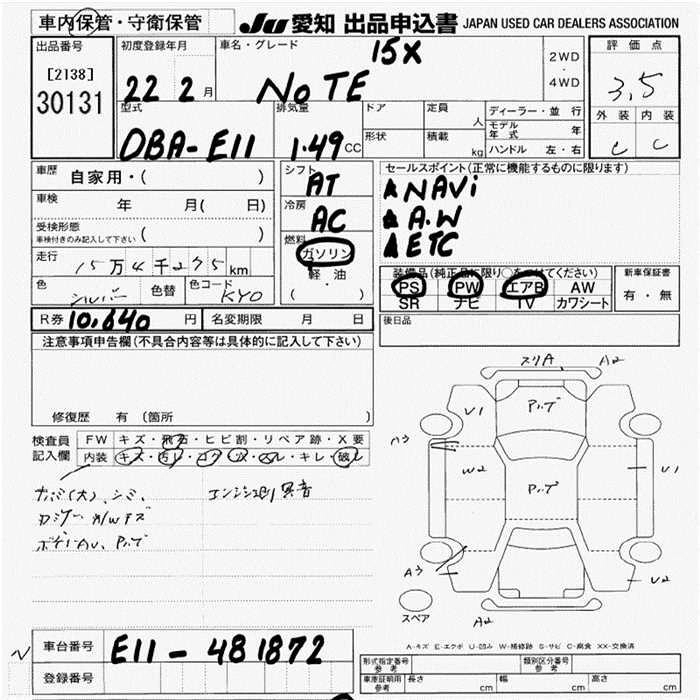 車内保管・守衛保管 JU 愛知 出品申込書 JAPAN USED CAR DEALERS ASSOCIATION
出品番号 [2138] 30131
初度登録年月 22 2月
車名・グレード NOTE 15X
2WD・4WD
評価点 3,5
外装 内装
C C
型式 DBA-E11
排気量 1.49 CC
ドア 定員 人
形状 積載 kg
ディーラー・並行
モデル年式 年
ハンドル 左・右
車歴 自家用・( )
車検 年 月( 日)
受検形態 ( )
車検付きのみ記入して下さい
走行 15万4千275km
色 シルバー 色替 色コード KYO
シフト AT
冷房 AC
燃料 ガソリン・軽油
( ・ )
セールスポイント(正常に機能するものに限ります)
NAVi
A.W
ETC
装備品(純正品に限り○をつけてください)
PS PW エアB AW
SR ナビ TV カワシート
新車保証書
有・無
R券 10,640円
名変期限 月 日
後日品
注意事項申告欄(不具合内容等は具体的に記入して下さい)
修復歴 有 (箇所 )
検査員記入欄
FW キズ・飛石・ヒビ割・リペア跡・X要
内装 キズ・汚レ・コゲ・穴・スレ・キレ・破レ
スリA A2
U1
P.ップ
A3
W2
P.ップ
U1
A3
U2
スペア
A2
A-キズ E-エクボ U-凹み W-補修跡 S-サビ C-腐食 XX-交換済
車台番号 E11-481872
登録番号
形式指定番号 参考
類別区分番号 参考
車庫証明用 参考
長さ cm 幅 cm 高さ cm